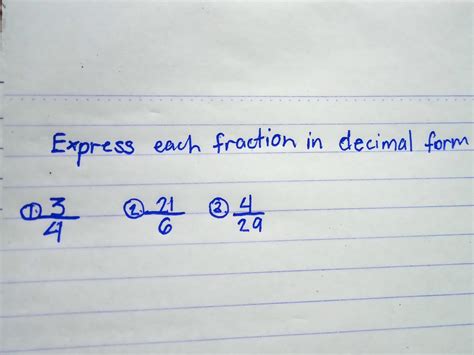 Express each fraction in decimal form
① 3/4 ② 21/6 ③ 4/29